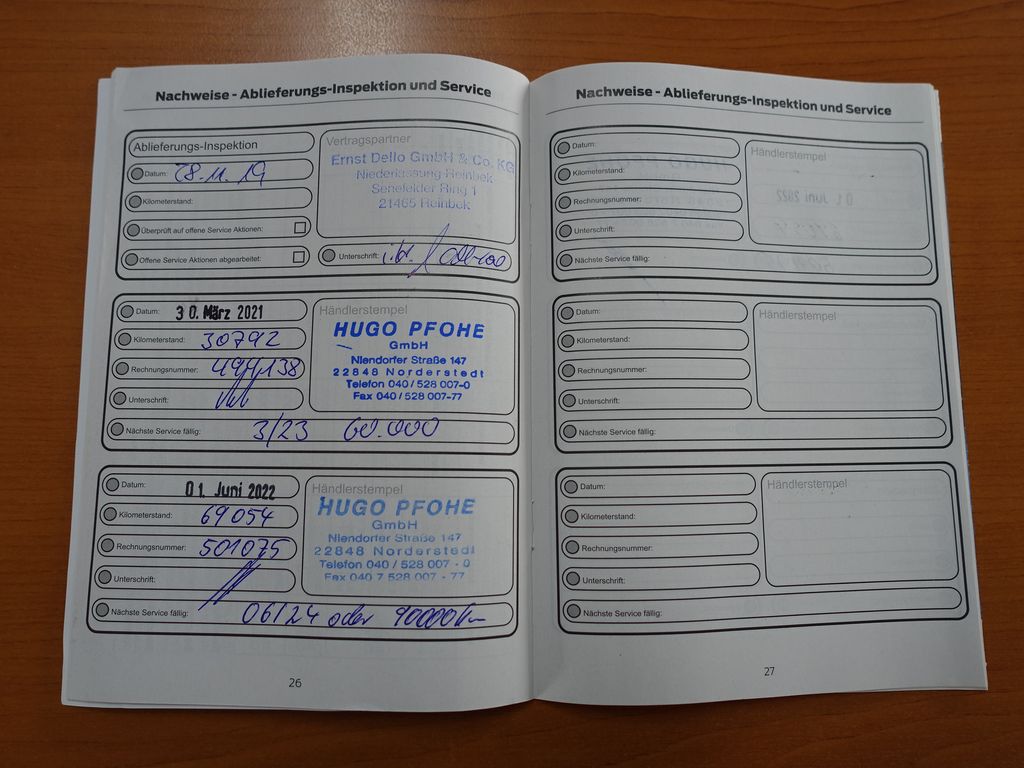 Nachweise - Ablieferungs-Inspektion und Service
Ablieferungs-Inspektion
Datum: 28.11.19
Kilometerstand:
Überprüft auf offene Service Aktionen:
Offene Service Aktionen abgearbeitet:
Vertragspartner
Ernst Dello GmbH & Co. KG
Niederlassung Reinbek
Senefelder Ring 1
21465 Reinbek
Unterschrift:
Datum: 30. März 2021
Kilometerstand: 30792
Rechnungsnummer:
Unterschrift:
Händlerstempel
HUGO PFOHE
GmbH
Niendorfer Straße 147
22848 Norderstedt
Telefon 040 / 528 007-0
Fax 040 / 528 007-77
Nächste Service fällig: 3/23 60.000
Datum: 01. Juni 2022
Kilometerstand: 69054
Rechnungsnummer: 501075
Unterschrift:
Händlerstempel
HUGO PFOHE
GmbH
Niendorfer Straße 147
22848 Norderstedt
Telefon 040 / 528 007 - 0
Fax 040 / 528 007 - 77
Nächste Service fällig: 06/24 oder 90000km
26
Nachweise - Ablieferungs-Inspektion und Service
Datum:
Kilometerstand:
Rechnungsnummer:
Unterschrift:
Händlerstempel
Nächste Service fällig:
Datum:
Kilometerstand:
Rechnungsnummer:
Unterschrift:
Händlerstempel
Nächste Service fällig:
Datum:
Kilometerstand:
Rechnungsnummer:
Unterschrift:
Händlerstempel
Nächste Service fällig:
27